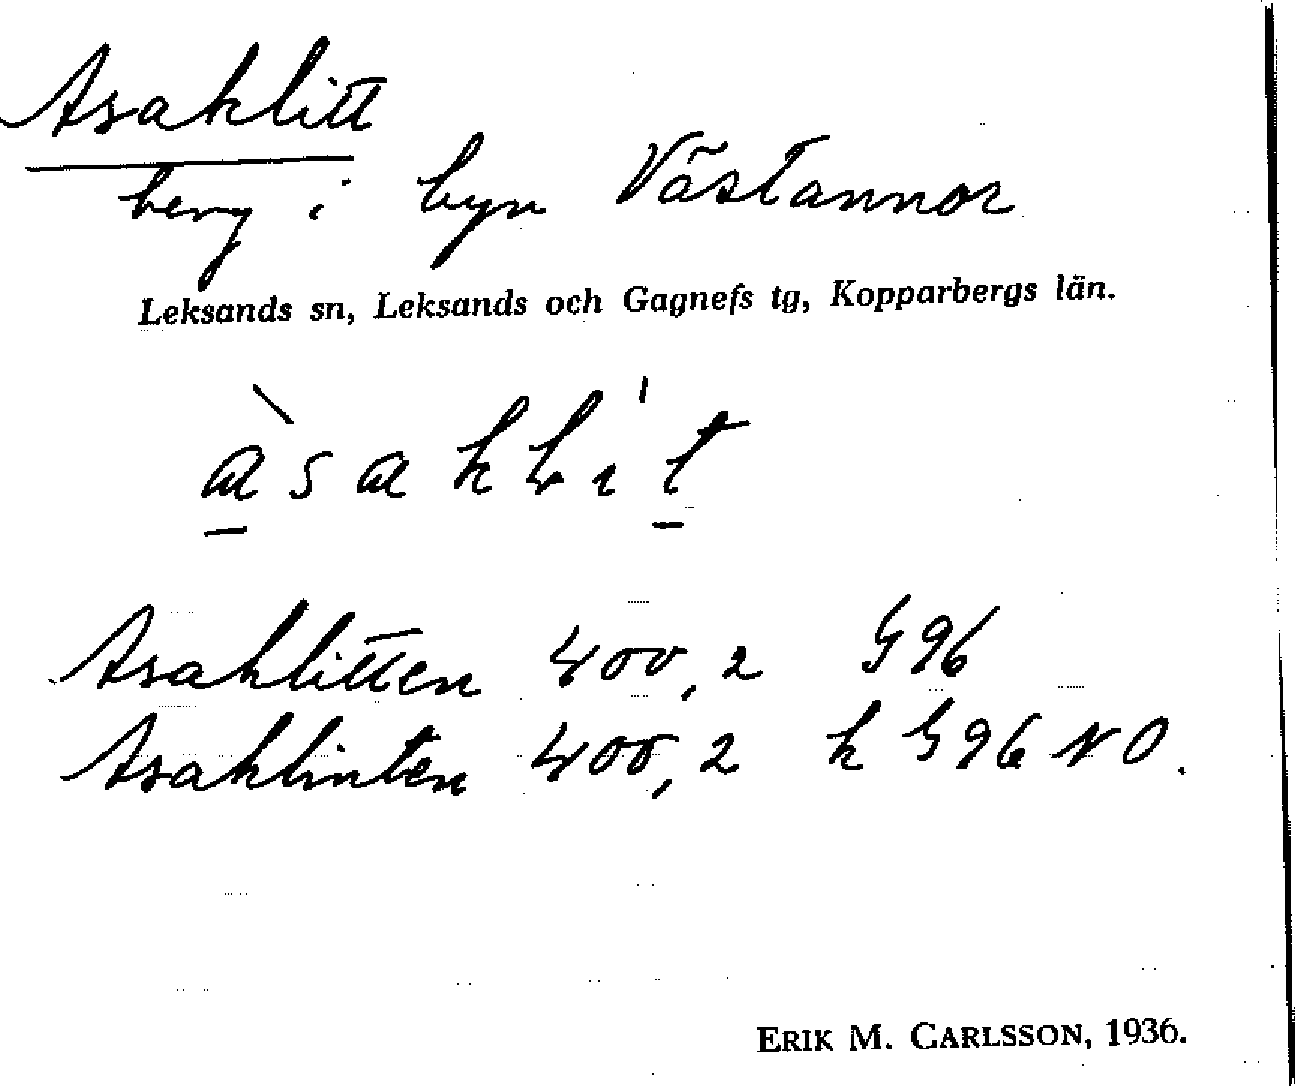 Asaklitt
berg i byn Västannor
Leksands sn, Leksands och Gagnefs tg, Kopparbergs län.
àsaklit
Asaklitten 400,2 G96
Asaklinten 400,2 k G96 NO.
ERIK M. CARLSSON, 1936.